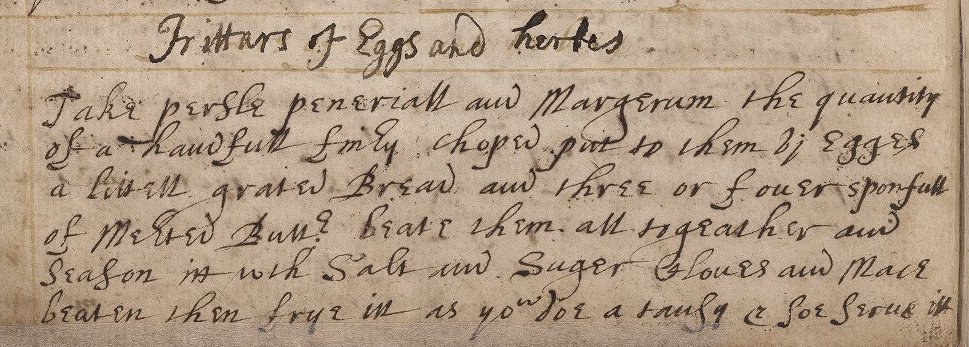 Frittars of Eggs and herbes
Take persle peneriall and Margerum the quantity
of a handfull finly choped put to them vj Egges
a littell grated Bread and three or fouer sponfull
of Melted Butter beate them all togeather and
Season itt with Salt and Suger Cloues and Mace
beaten then frye itt as you doe a tansy & soe serue itt